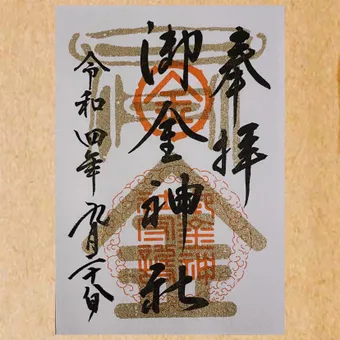 奉拝
御金神社
令和四年九月二十八日
金